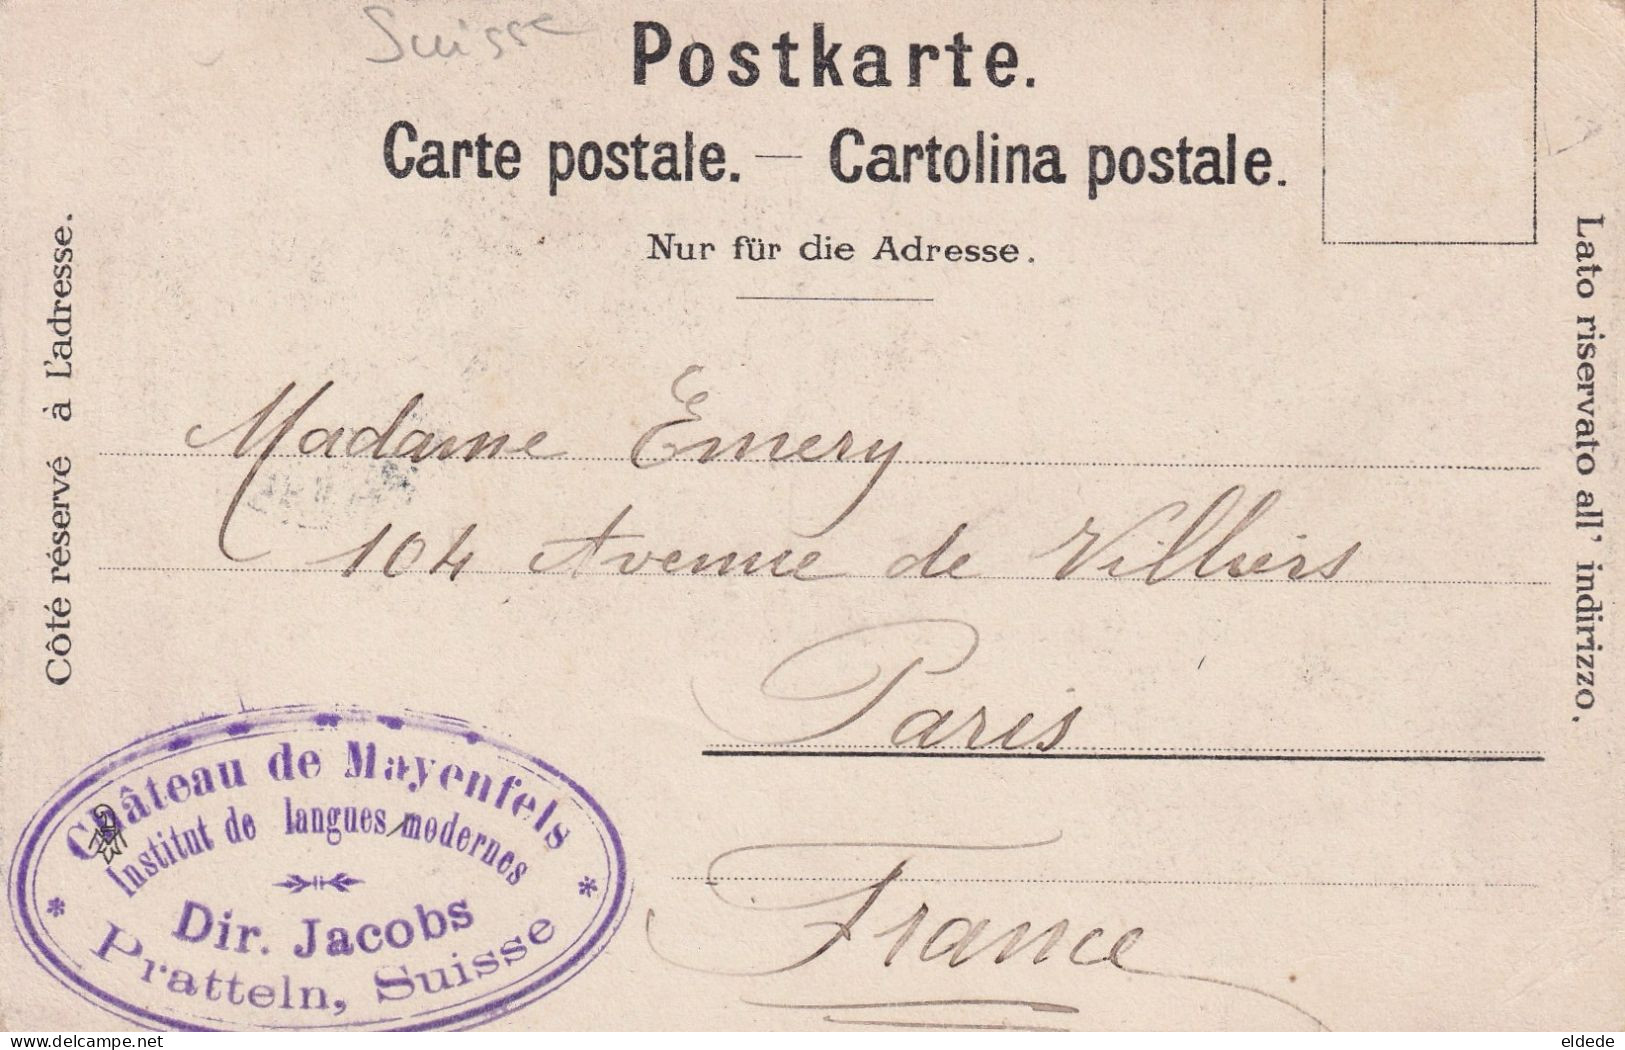 Suisse
Postkarte.
Carte postale. — Cartolina postale.
Nur für die Adresse.
Côté réservé à L'adresse.
Lato riservato all' indirizzo.
Madame Emery
104 Avenue de Villiers
Paris
France
Château de Mayenfels
Institut de langues modernes
Dir. Jacobs
Pratteln, Suisse
delcampe.net
eldede